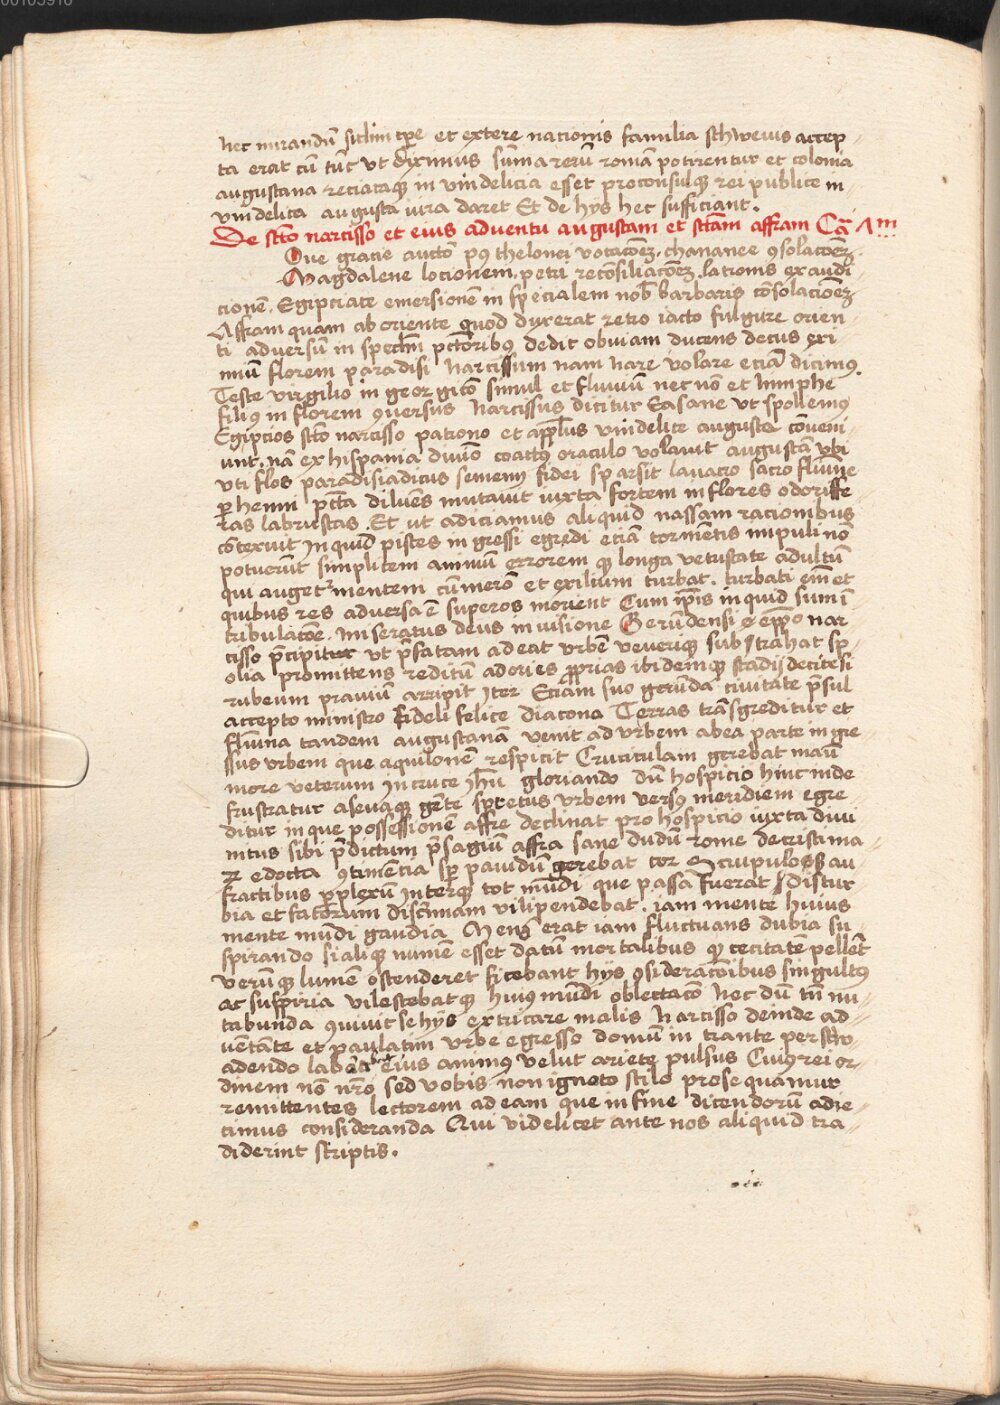 00105910
nec mirandū si climi tpe et extere nationis familia schweuis accep„
ta erat cū tūc vt diximus sūma rerū romā potirentur et colonia
augustana reciataqȝ in vindelicia esset proconsulqȝ rei publice in
vindelica augusta iura daret Et de hys hec sufficiant.
De scto narcisso et eius aduentu augustam et sctam affram Ca
Que gracie auctor thelonei vocacōeȝ. chananee ꝯsolacōeȝ.
Magdalene locionem. petri recōsiliacōeȝ. latronis exaudi„
cionē. Egipciace emersionē in specialem nob barbaris cōsolacōeȝ
Affram quam ab oriente quod duxerat retro iacto fulgure orien„
ti aduersū in peccōribus dedit obuiam ducens decus exi„
miū florem paradisi Narcissum nam nare volare eciā dicimꝰ.
Teste virgilio in georgico simul et fluuiū nec nō et nimphe
filiꝰ in florem ꝯuersus Narcissus dicitur Ea sane vt spoliemꝰ
Egipcios scto narcisso patrono et vindelice auguste cōueni„
unt. nā ex hispania diuīo coactꝰ oraculo volauit augustā vbi
vti flos paradisiadicus semem fidei sparsit lauacro sacro flumie
phenni pctā diluēs mutauit iuxta fortem in flores odoriffe„
ras labruscas. Et ut adiciamus aliquid nassam racionibus
cōtexuit in quid pistes in gressi egredi eciā tormētis impuli nō
potuerūt simplicem animū errorem qȝ longa vetustate adultū
qui auget mentem cū merō et exilium turbat. turbati em̄ et
quibus res aduersa ē superos mouent Cum ipīs in quid sum ī
tribulacōe. miseratus deus in visione Gerūdensi eppo nar„
cisso p̄cipitur vt p̄fatam adeat vrbē veuerique substrahat sp„
olia promittens reditū ad ories prias ibidemqȝ stadij decitesi
rubeum prauiū arripit Iter Eciam suo gerūda ciuitate p̄sul
accepto ministro fideli felice diacona Terras trāsgreditur et
flumīa tandem augustanā venit ad vrbem ab ea parte in gre„
ssus vrbem que aquilonē respicit Cruciculam gerebat manū
more veterum in cruce ihū gloriando dū hospicio hinc inde
frustratur a seuaqȝ gēte spretus vrbem versꝰ meridiem egre„
ditur in que possessionē affre declinat pro hospicio iuxta diui
nitus sibi p̄dictum p̄sagiū affra sane dudū rome de cristima
edocta ꝯtinēcia sp pauidū gerebat cor Scrupulosis an„
fractibus pplexū Interqȝ tot mūdi que passa fuerat distur„
bia et fatorum discrimiam vilipendebat. iam mente huius
mente mūdi gaudia Mens erat iam fluctuans dubia su„
spirando si aliqȝ numē esset datū mortalibus qȝ cecitatē pellet
verūqȝ lumē ostenderet ficebant hys ꝯsideracōibus singultꝰ
ac suspiria vilescebatqȝ huius mūdi oblectacō nec dū tn̄ nu„
tabunda ꝯuiuit se hys extricare malis Narcisso deinde ad„
uētāte et paulatim vrbe egresso domū in trante per scru„
adendo labo eius animꝰ velut ariete pulsus Cuiꝰ rei or„
dinem nō nro sed vobis non ignoto stilo prosequamur
remittentes lectorem ad eam que in fine dicendorū adie„
cimus consideranda Qui videlicet ante nos aliquid tra„
diderint scriptis.